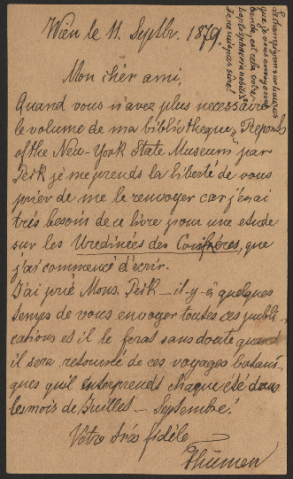 Wien le 11. Septbr. 1879.
Mon chèr ami,
Quand vous n'avez plus necessaire
le volume de ma bibliotheque „Reports
of the New-York State Museum" par
Peck je me prends la liberté de vous
prier de me le renvoyer car j'enai
très besoin de ce livre pour une etude
sur les Uredinées des Conifères, que
j'ai commencé d'écrir.
J'ai prié Mons. Peck – il-y-á quelques
temps de vous envoyer toutes ces publi-
cations et il le ferat sans doute quand
il sera retourné de ces voyages botani-
ques qu'il enterprends chaque été dans
les mois de Juillet – Septembre.
Votre très fidèle
Thümen
Le champignon sur
que je vous